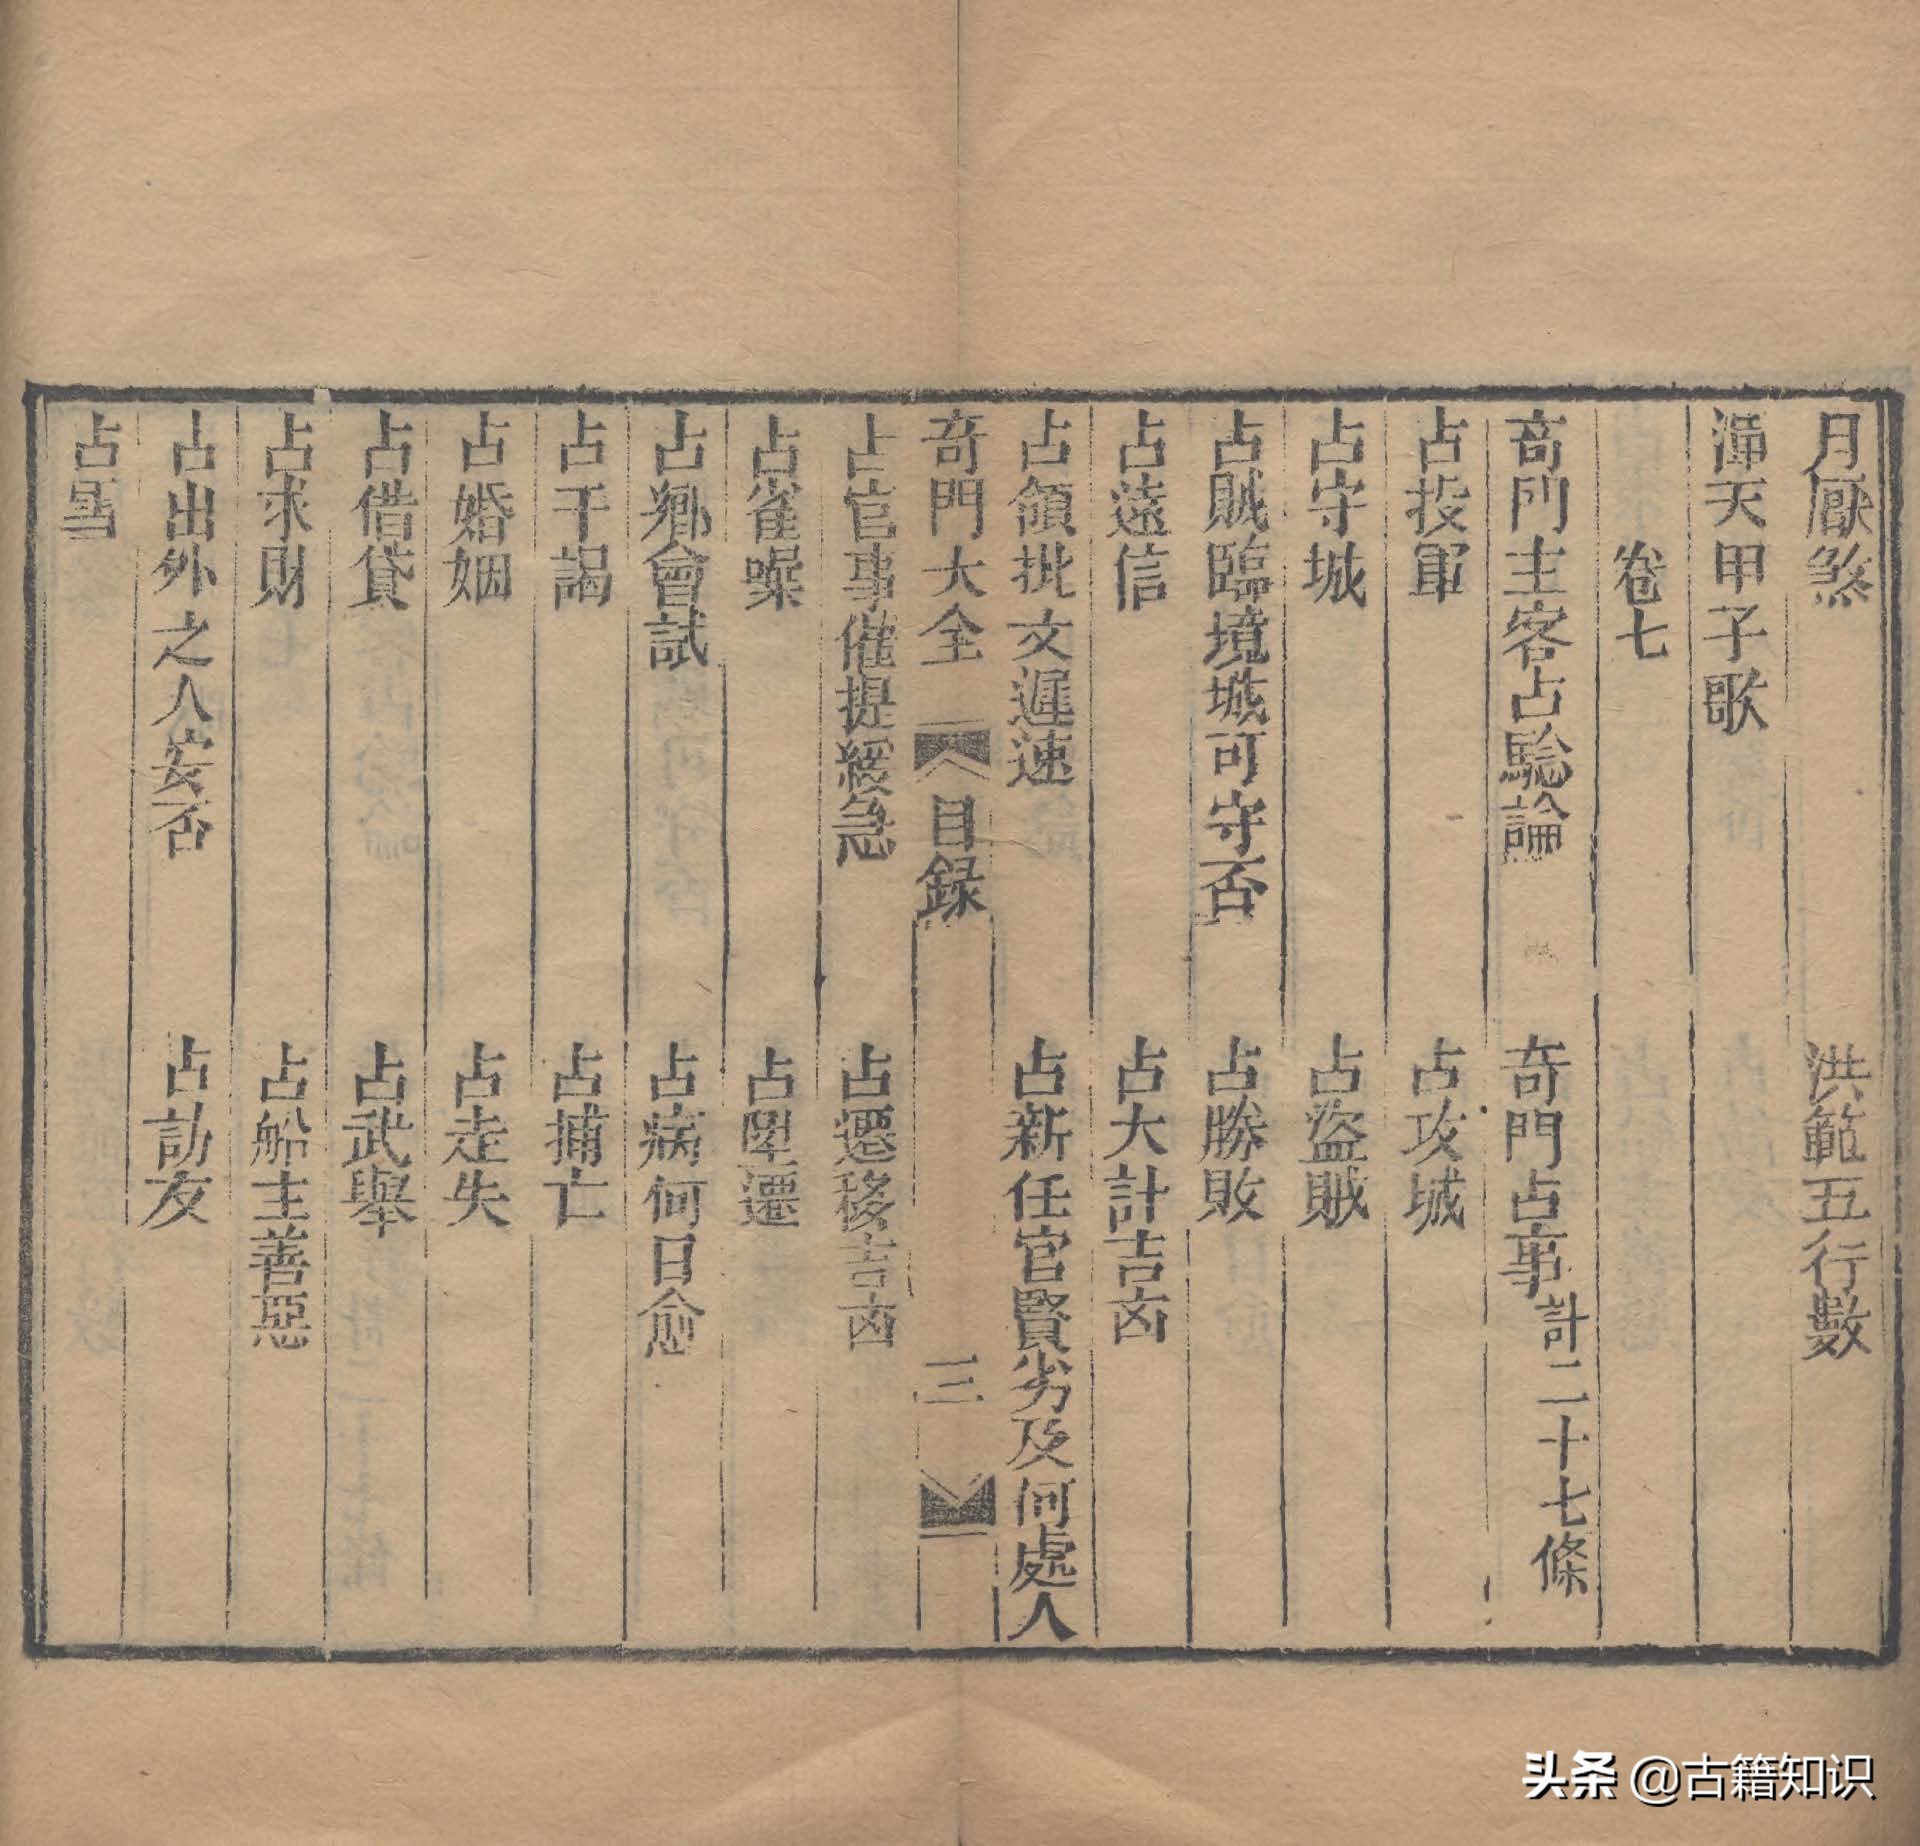 月厭煞　洪範五行數
潼天甲子歌
卷七
奇門主客占驗論　奇門占事計二十七條
占投軍　占攻城
占守城　占盜賊
占賊臨境城可守否　占勝敗
占遠信　占大計吉凶
占領批文遲速　占新任官賢劣及何處人
奇門大全　目錄　三
占官事催提緩急　占遷移吉凶
占雀噪　占陞遷
占鄉會試　占病何日愈
占干謁　占捕亡
占婚姻　占走失
占借貸　占武舉
占求財　占船主善惡
占出外之人安否　占訪友
占雪
头条 @古籍知识